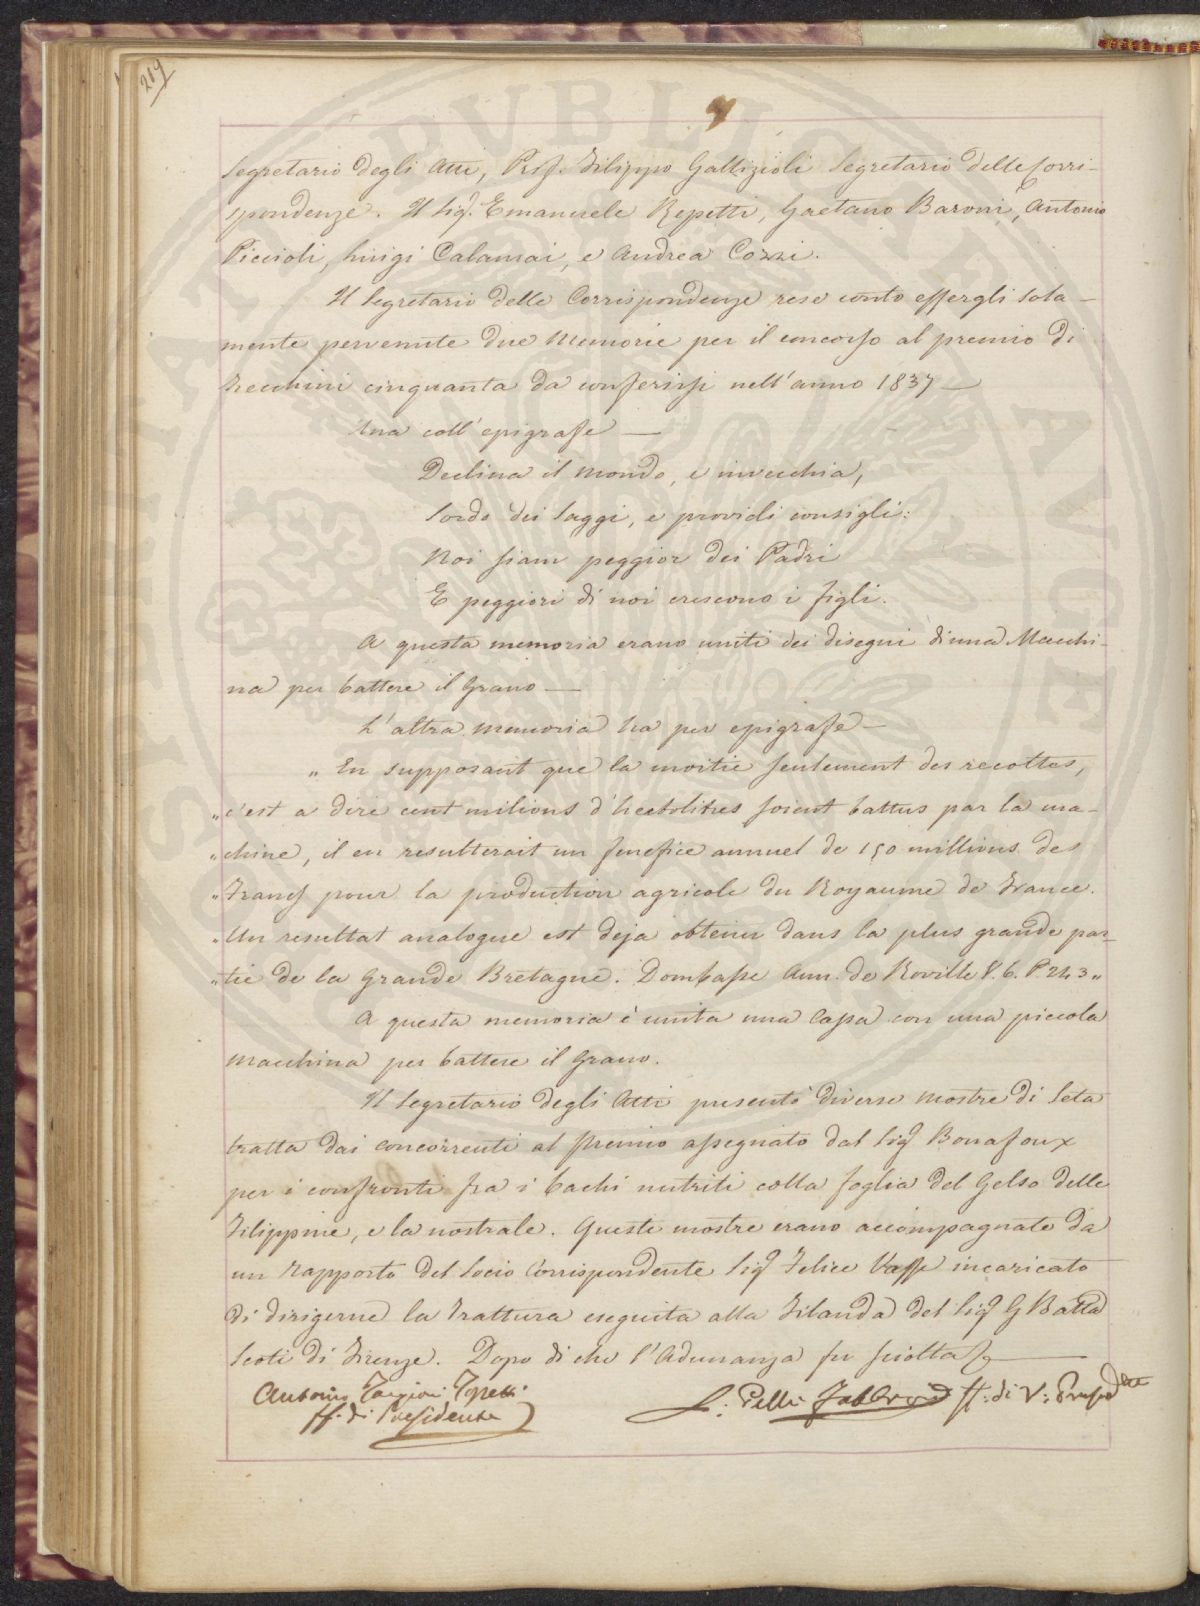 219
Segretario degli Atti, Prof. Filippo Gallizioli Segretario delle Corri-
spondenze. Il Sig.r Emanuele Repetti, Gaetano Baroni, Antonio
Piccioli, Luigi Calamai, e Andrea Cozzi.
Il Segretario delle Corrispondenze rese conto essergli sola-
mente pervenute due Memorie per il concorso al premio di
Zecchini cinquanta da conferirsi nell'anno 1837 —
Una coll'epigrafe —
Declina il mondo, e invecchia,
Sordo dei Saggi, e providi consigli:
Noi siam peggior dei Padri
E peggiori di noi crescono i figli.
A questa memoria erano uniti dei disegni d'una Macchi-
na per battere il Grano —
L'altra memoria ha per epigrafe —
„ En supposant que la moitie seulement des recoltes,
„ c'est a dire cent milions d'hectolitres soient battus par la ma-
„ chine, il en resulterait un benefice annuel de 150 millions des
„ Francs pour la production agricole du Royaume de France.
„ Un resultat analogue est deja obtenu dans la plus grande par-
„ tie de la Grande Bretagne. Dombasle Ann. de Roville V. 6. P. 243 „
A questa memoria è unita una Cassa con una piccola
macchina per battere il Grano.
Il Segretario degli Atti presentò diverse mostre di Seta
tratta dai concorrenti al premio assegnato dal Sig.r Bonafoux
per i confronti fra i bachi nutriti colla foglia del Gelso delle
Filippine, e la nostrale. Queste mostre erano accompagnate da
un rapporto del Socio Corrispondente Sig.r Felice Vasse incaricato
di dirigerne la Trattura eseguita alla Filanda del Sig.r G Batta
Scoti di Firenze. Dopo di che l'Adunanza fu sciolta
Antonio Targioni Tozzetti
ff. di Presidente
L. Pelli Fabbroni ff: di V: Presid.te